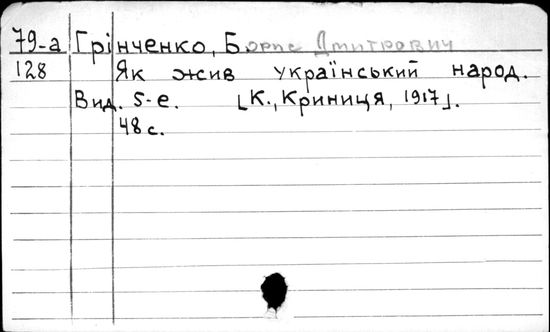 79-а Грінченко, Борис Дмитрович
128 Як жив український народ.
Вид. 5-е. [К., Криниця, 1917].
48 с.